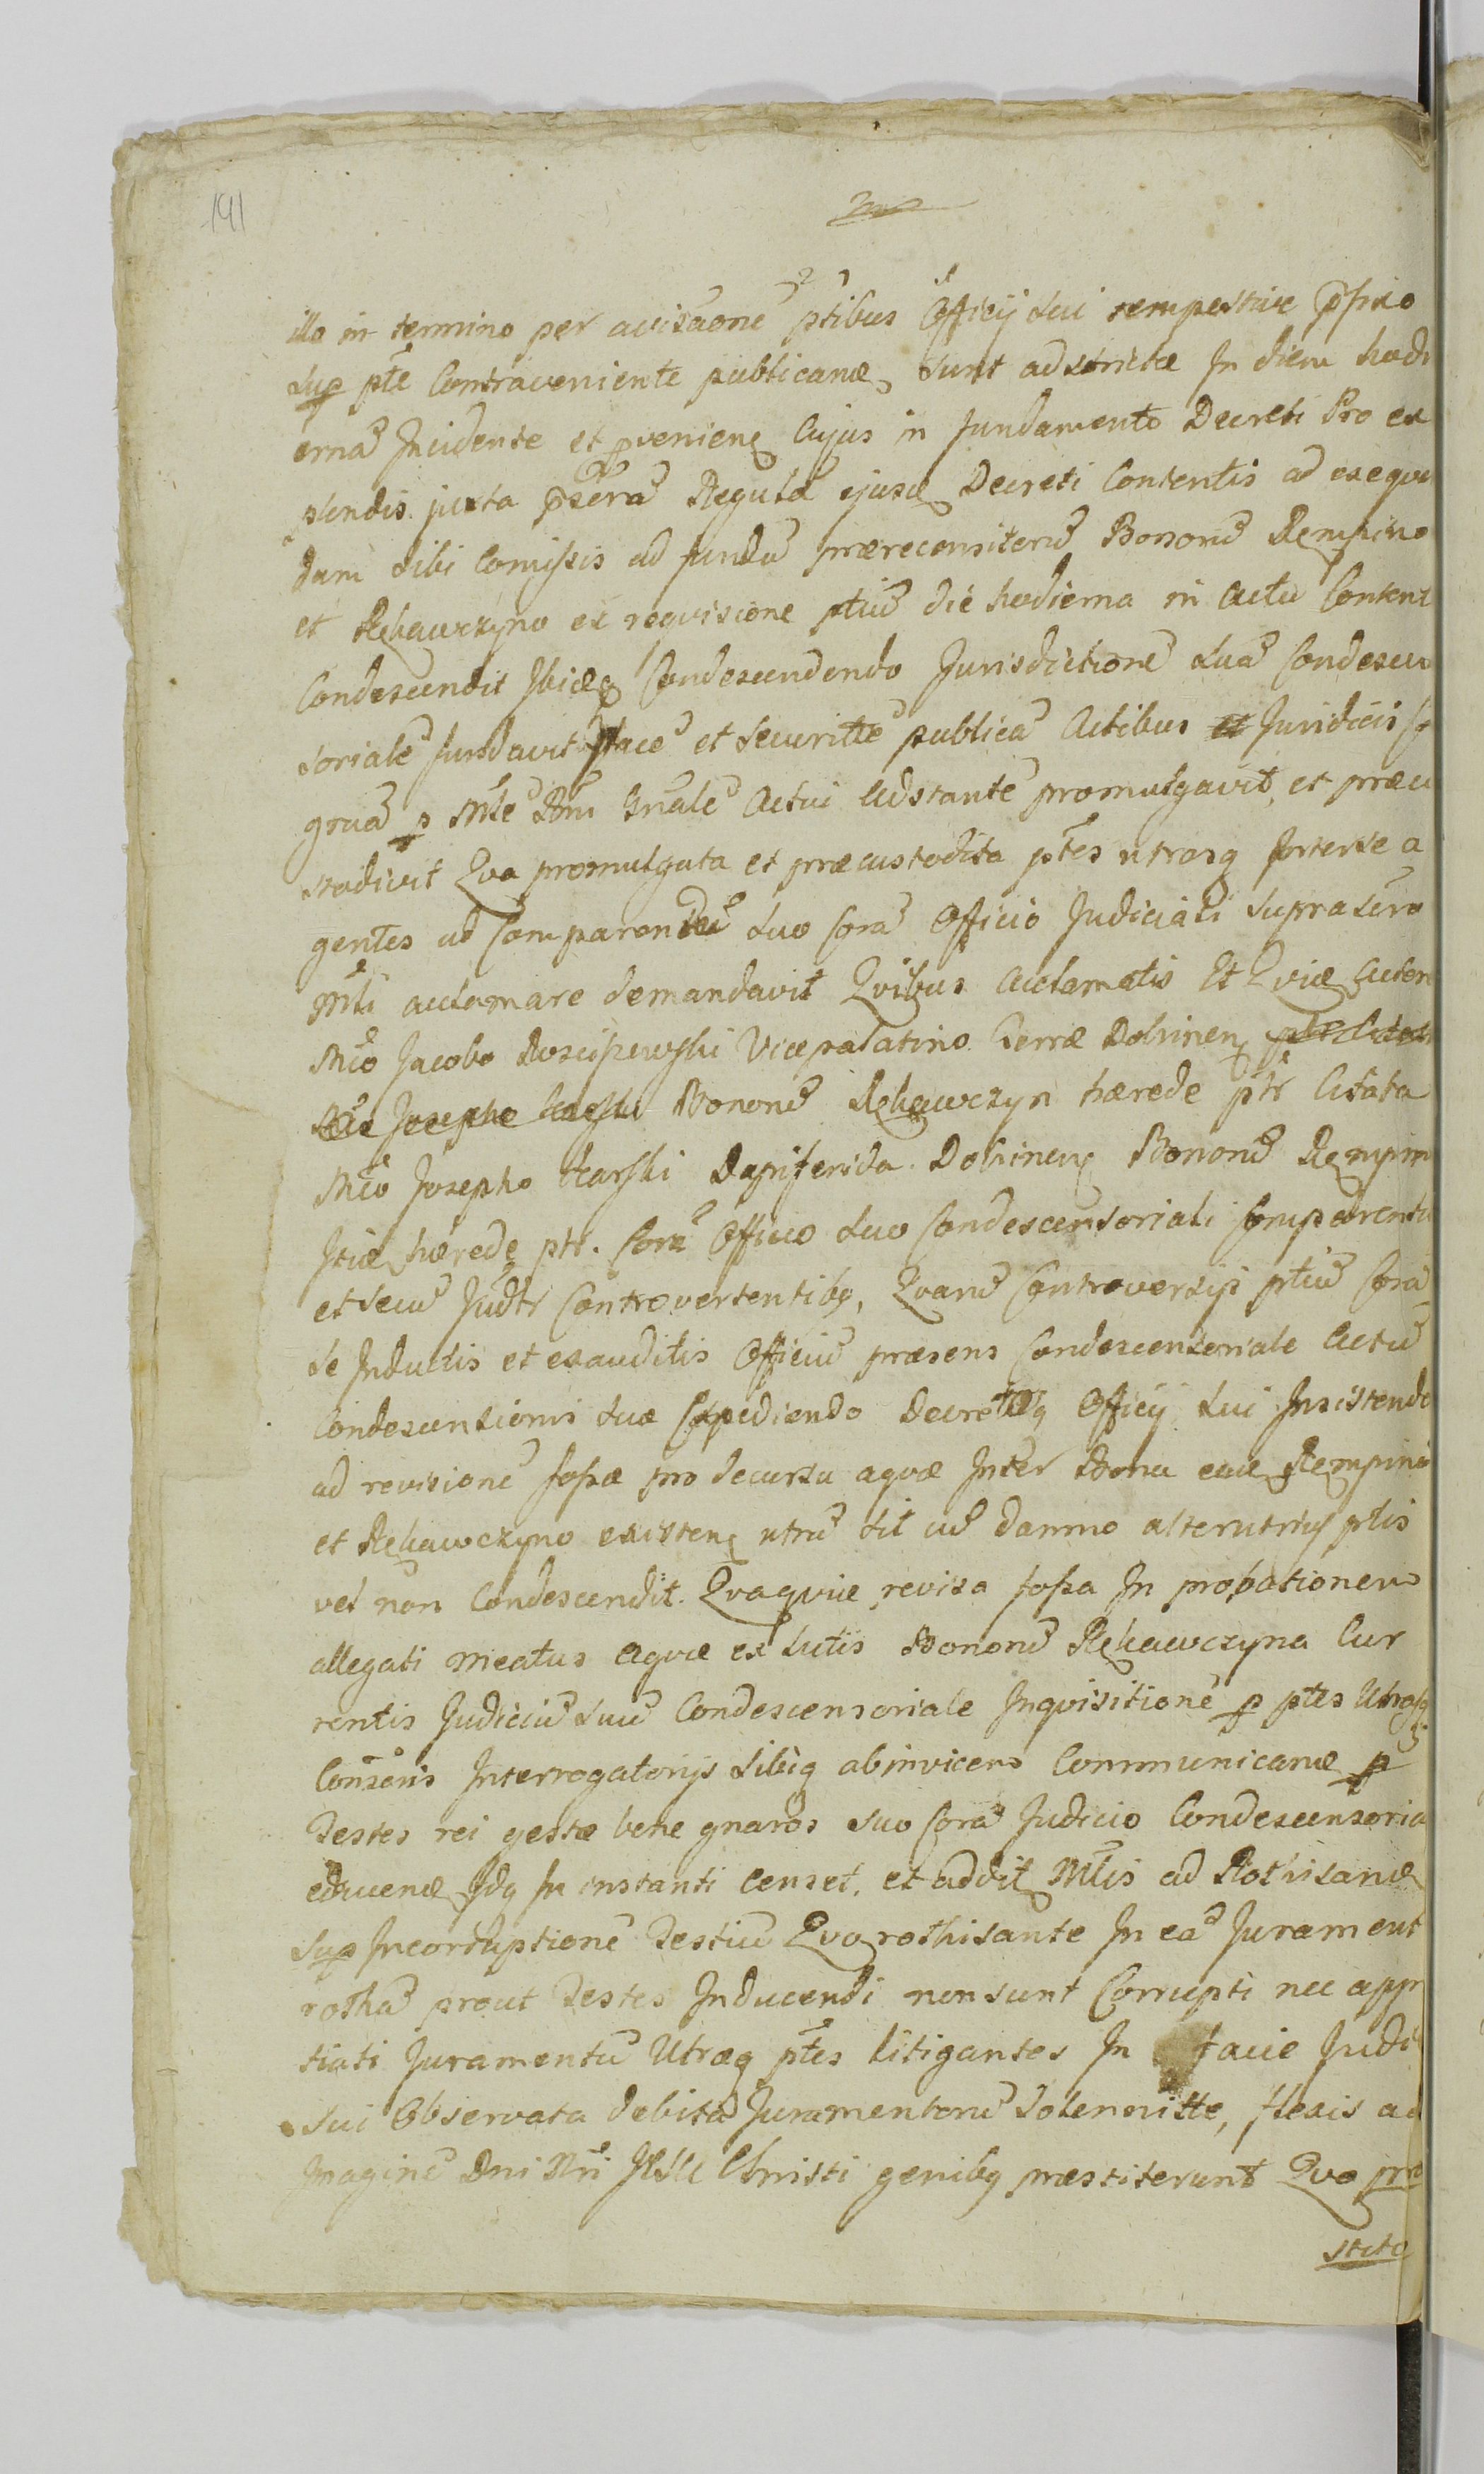 191
illo in termino per avisaonẽ ptibus Officij sui tempestive
sup pte Contraveniente publicanæ, sunt adstrictæ In diem hodi
ernã Incidente et pvenienę Cujus in fundamento Decreti Pro ex
plendis juxta Regulã ejusd Decreti Contentis ad exequen
dum sibi Comissis ad fundũ prærecensitorũ Bonorũ Rempino
et Rękawczyno ex requisicione ptiũ die hodierna in actu Content
Condescendit Ibidę Condescendendo Jurisdictionẽ suã Condescen
sorialẽ fundavit Pacẽ et securittẽ publicã Actibus Juridicis
gruã p Mlẽ Dũm Gnalẽ Actui Adstantẽ promulgavit, et præcu
stodivit Qva promulgata et præcustodita ptes utrasq Interse a
gentes ad Comparendũ suo Corã Officio Judiciali suprascro
Mli acclamare demandavit Qvibus Acclamatis Et Qvidę Actore
Mco Jacobo Rosciszewski Vicepalatino Terræ Dobrinenę
Josepho Karski Bonorũ Rękawczyn hærede ptr Citata
Mco Josepho Karski Dapiferida Dobrinenę Bonorũ Rempin
Itidę hærede ptr. Corã Officio suo Condescensoriali Comparentu
et secũ Judtr Controvertentibq, Qvarũ Controversijs ptiũ Corã
se Inductis et exauditis Officiũ præsens Condescensoriale Actũ
Condescensionis suæ Expediendo Decretoq Officij sui Insistendo
ad revisionẽ fossæ pro decursu aqvæ Inter Bona eadę Rempino
et Rękawczyno existenę utrũ sit cũ damno alterutrius ptis
vel non Condescendit. Qvaqvidę revisa fossa In probationem
allegati meatus aqvæ ex lutis Bonorũ Rękawczyna Cur
rentis Judiciũ suũ Condescensoriale Inqvisitionẽ p ptes Utrasq
Conscris Interrogatorijs sibiq abinvicem Communicanæ p
Testes rei gestæ bene gnaros suo Corã Judicio Condescensoria
educenæ Idq In instanti censet. et addit Mlis ad Rothisanæ
sup Incorruptionẽ Testiũ Qvo rothisante In eã Jurament
rothã prout Testes Inducendi non sunt Corrupti nec appr
tiati Juramentũ Utræq ptes litigantes In facie Judi
sui Observata debita Juramentorũ Solennitte, flexis ad
Imaginẽ Dni Nri JESU Christi genibq præstiterunt Qvo præ
stito